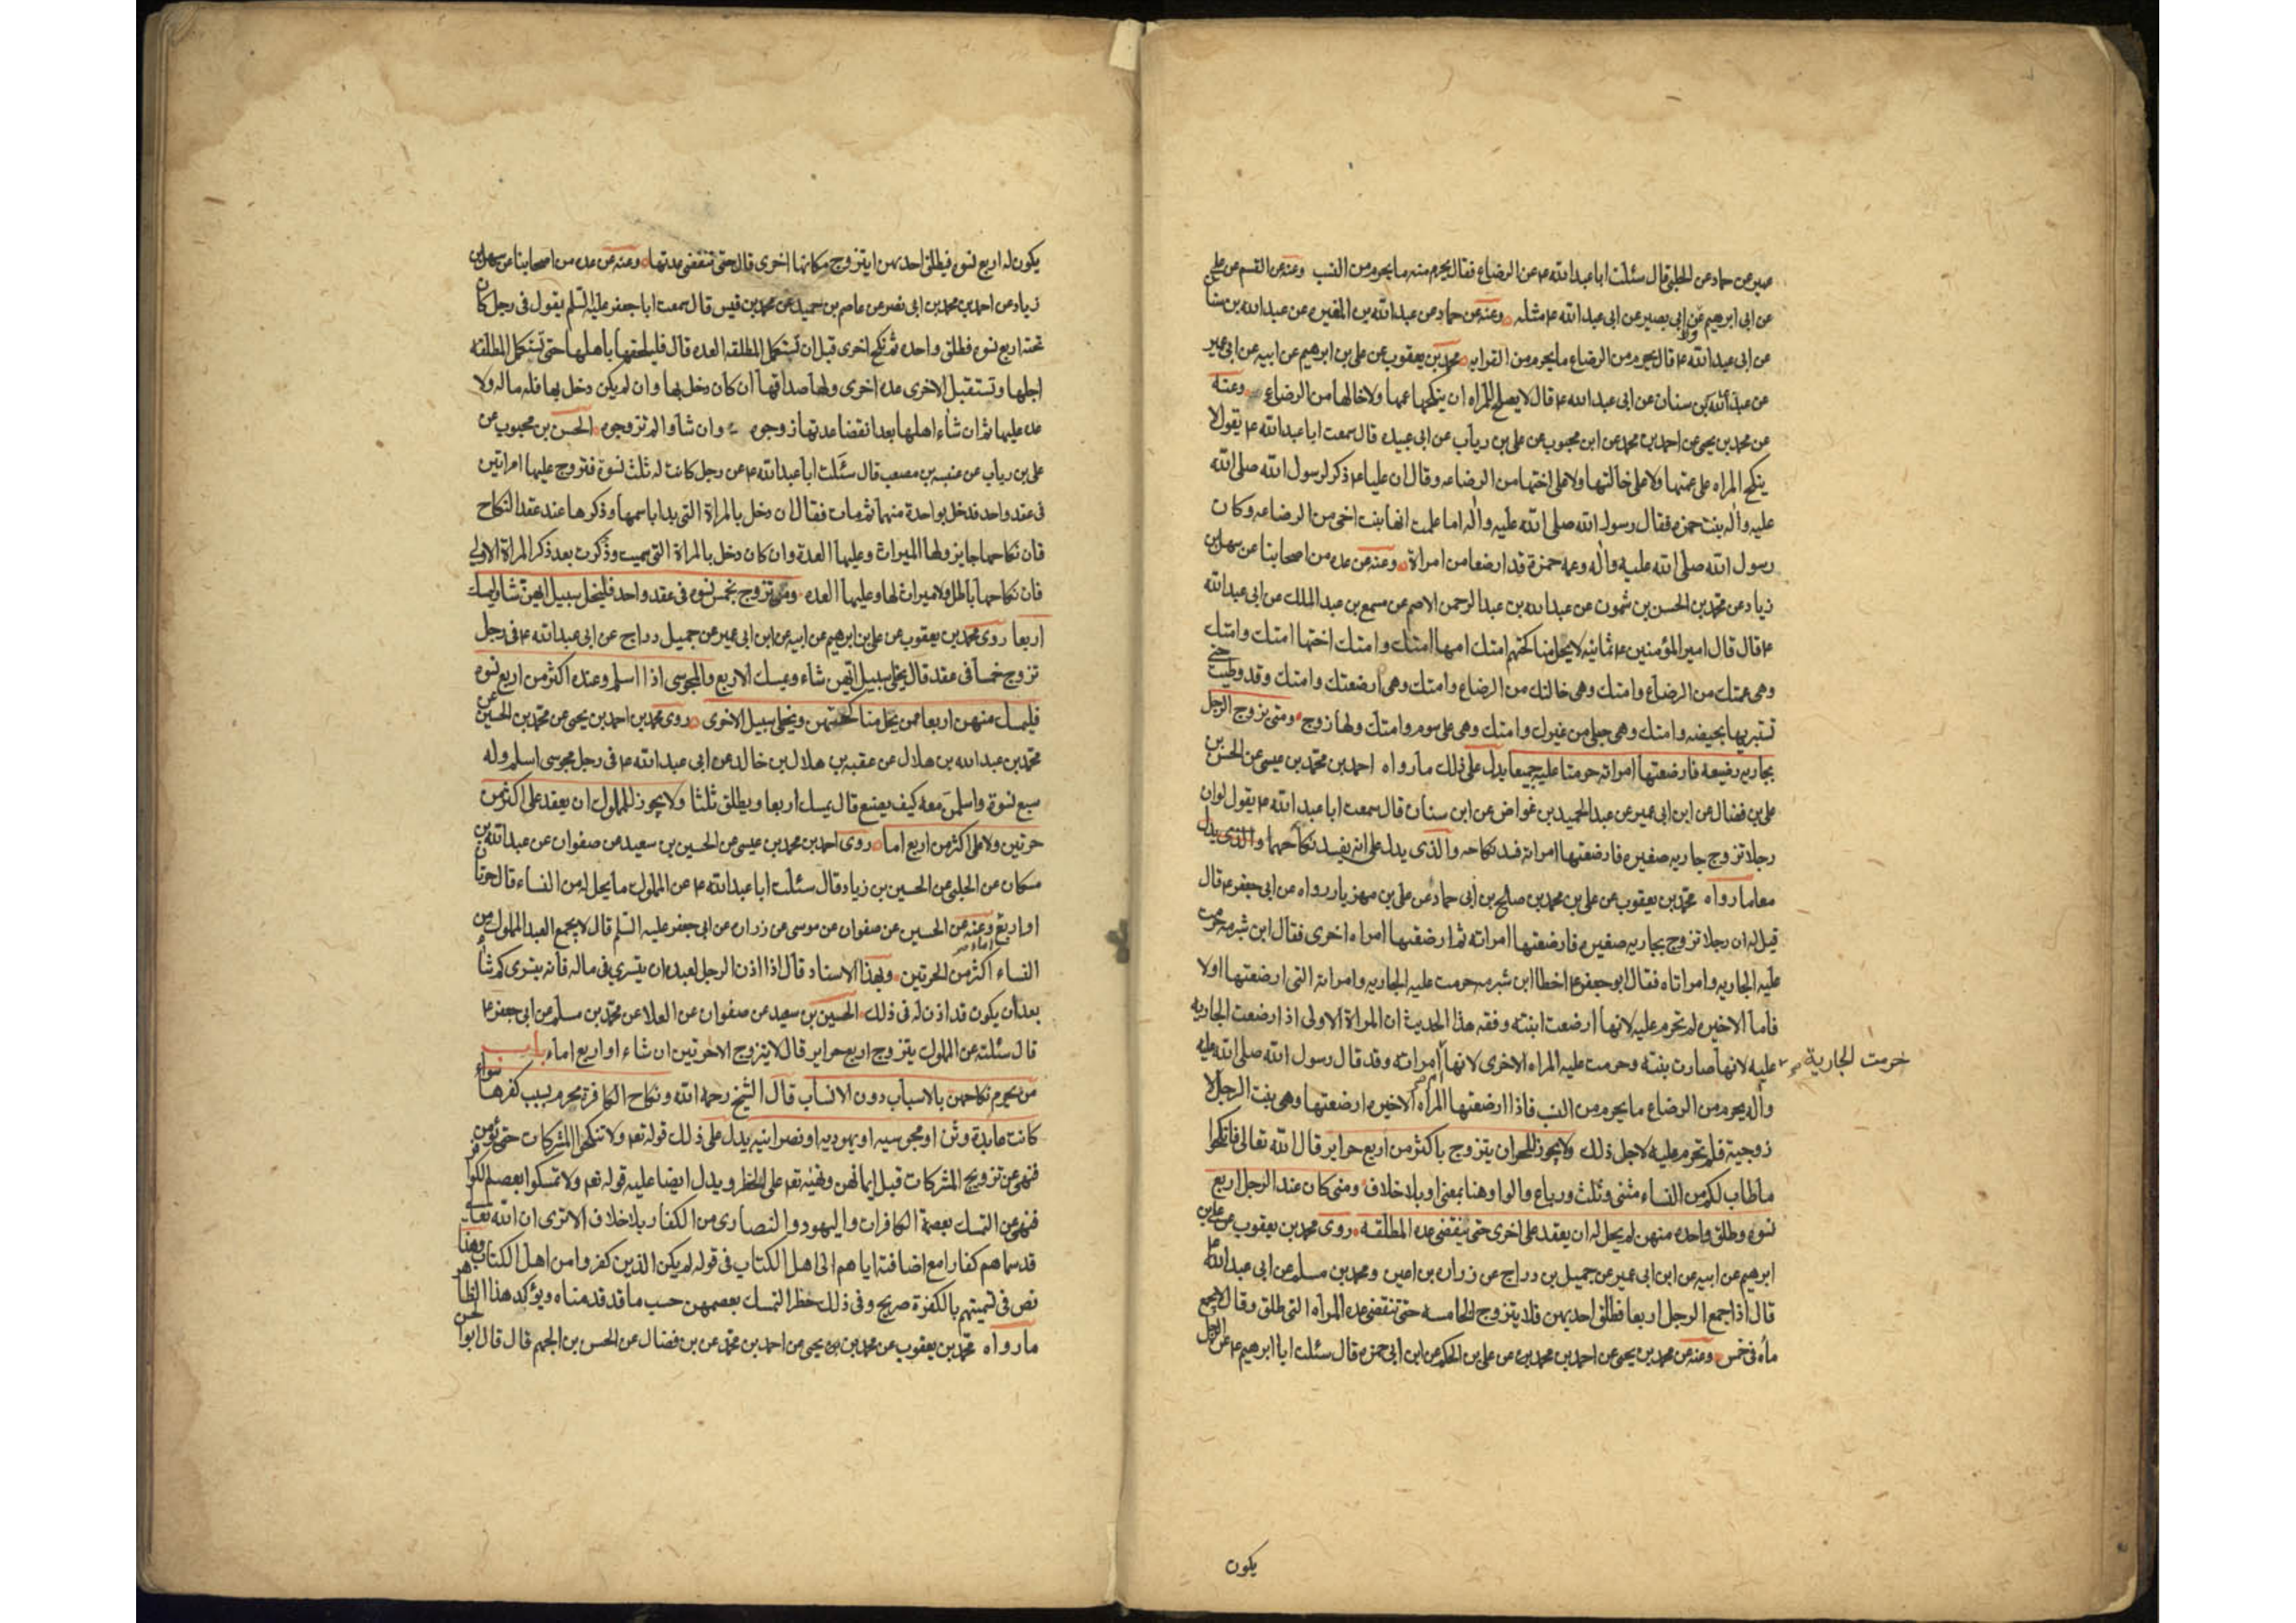 عمير عن حماد عن الحلبي قال سئلت ابا عبد الله ع عن الرضاع فقال يحرم منه ما يحرم من النسب وعنه عن القسم عن علي
عن ابي ابرهيم عن ابي بصير عن ابي عبد الله ع مثله وعنه عن حماد عن عبد الله بن المغيره عن عبد الله بن سنا
عن ابي عبد الله ع قال يحرم من الرضاع ما يحرم من القرابه محمد بن يعقوب عن علي بن ابرهيم عن ابيه عن ابي عمير
عن عبد الله بن سنان عن ابي عبد الله ع قال لا يصلح للمراه ان ينكحها عمها ولا خالها من الرضاع وعنه
عن محمد بن يحيى عن احمد بن محمد عن ابن محبوب عن علي بن رياب عن ابي عبيده قال سمعت ابا عبد الله ع يقول لا
ينكح المراه على عمتها ولا على خالتها ولا على اختها من الرضاعه وقال ان عليا ع ذكر لرسول الله صلى الله
عليه واله بنت حمزه فقال رسول الله صلى الله عليه واله اما علمت انها بنت اخي من الرضاعه وكان
رسول الله صلى الله عليه واله وعمه حمزة قد ارضعا من امراة وعنه عن عده من اصحابنا عن سهل بن
زياد عن محمد بن الحسن بن شمون عن عبد الله بن عبد الرحمن الاصم عن مسمع بن عبد الملك عن ابي عبد الله
ع قال قال امير المؤمنين ع ثمانيه لا يحل مناكحتهم امتك امها امتك وامتك اختها امتك وامتك
وهي عمتك من الرضاع وامتك وهي خالتك من الرضاع وامتك وهي ارضعتك وامتك وقد وطيت حتى
تستبريها بحيضه وامتك وهي حبلى من غيرك وامتك وهي على سوم وامتك ولها زوج ومتى تزوج الرجل
بجاريه رضيعه فارضعتها امراته حرمتا عليه جميعا يدل على ذلك ما رواه احمد بن محمد بن عيسى عن الحسن بن
علي بن فضال عن ابن ابي عمير عن عبد الحميد بن غواض عن ابن سنان قال سمعت ابا عبد الله ع يقول لو ان
رجلا تزوج جاريه صغيره فارضعتها امراته فسد نكاحه والذي يدل على انه يفسد نكاحهما والذي يدل
معا ما رواه محمد بن يعقوب عن علي بن محمد عن صالح بن ابي حماد عن علي بن مهزيار رواه عن ابي جعفر ع قال
قيل له ان رجلا تزوج بجاريه صغيره فارضعتها امراته ثم ارضعتها امراه اخرى فقال ابن شبرمه حرمت
عليه الجاريه وامراتاه فقال ابو جعفر ع اخطا ابن شبرمه حرمت عليه الجاريه وامراته التي ارضعتها اولا
فاما الاخيره لم تحرم عليه لانها ارضعت ابنته وفقه هذا الحديث ان المراة الاولى اذا ارضعت الجاريه
خرمت الجارية صح
عليه لانها صارت بنته وحرمت عليه المراه الاخرى لانها ام امراته وقد قال رسول الله صلى الله عليه
واله يحرم من الرضاع ما يحرم من النسب فاذا ارضعتها المراه الاخيره ارضعتها وهي بنت الرجل لا
زوجيته فلم تحرم عليه لاجل ذلك ولا يجوز للحر ان يتزوج باكثر من اربع حراير قال الله تعالى فانكحوا
ما طاب لكم من النساء مثنى وثلث ورباع والواو هنا بمعنى او بلا خلاف ومتى كان عند الرجل اربع
نسوه وطلق واحده منهن لم يحل له ان يعقد على اخرى حتى ينقضي عده المطلقه روى محمد بن يعقوب عن علي بن
ابرهيم عن ابيه عن ابن ابي عمير عن جميل بن دراج عن زراره بن اعين ومحمد بن مسلم عن ابي عبد الله ع
قال اذا جمع الرجل اربعا فطلق احديهن فلا يتزوج الخامسه حتى تنقضي عده المراه التي طلق وقال لا يجمع
ماءه في خمس وعنه عن محمد بن يحيى عن احمد بن محمد عن علي بن الحكم عن ابن ابي حمزه قال سئلت ابا ابرهيم ع عن الرجل
يكون
يكون له اربع نسوه فيطلق احديهن ايتزوج مكانها اخرى قال حتى تنقضي عدتها وعنه عن عده من اصحابنا عن سهل بن
زياد عن احمد بن محمد بن ابي نصر عن عاصم بن حميد عن محمد بن قيس قال سمعت ابا جعفر عليه السلم يقول في رجل كان
تحته اربع نسوه فطلق واحده ثم نكح اخرى قبل ان تستكمل المطلقه العده قال فليلحقها باهلها حتى تستكمل المطلقه
اجلها وتستقبل الاخرى عده اخرى ولها صداقها ان كان دخل بها وان لم يكن دخل بها فله ماله ولا
عده عليها ثم ان شاء اهلها بعد انقضا عدتها زوجوه وان شاوا لم تزوجوه الحسن بن محبوب عن
علي بن رياب عن عنبسه بن مصعب قال سئلت ابا عبد الله ع عن رجل كانت له ثلث نسوة فتزوج عليها امراتين
في عقد واحد فدخل بواحدة منهما ثم مات فقال ان دخل بالمراة التي بدا باسمها وذكرها عند عقد النكاح
فان نكاحها جايز ولها الميراث وعليها العدة وان كان دخل بالمراة التي سميت وذكرت بعد ذكر المراة الاولى
فان نكاحها باطل ولا ميراث لها وعليها العده ومن تزوج بخمس نسوه في عقد واحد فليخل سبيل ايتهن شا ويمسك
اربعا روى محمد بن يعقوب عن علي بن ابرهيم عن ابيه عن ابن ابي عمير عن جميل دراج عن ابي عبد الله ع في رجل
تزوج خمسا في عقد قال يخلي سبيل ايتهن شاء ويمسك الاربع والمجوسي اذا اسلم وعنده اكثر من اربع نسوه
فليمسك منهن اربعا ممن يحل مناكحتهن ويخلي سبيل الاخرى روى محمد بن احمد بن يحيى عن محمد بن الحسين عن
محمد بن عبد الله بن هلال عن عقبه بن هلال بن خالد عن ابي عبد الله ع في رجل مجوسي اسلم وله
سبع نسوة واسلمن معه كيف يصنع قال يمسك اربعا ويطلق ثلثا ولا يجوز للملوك ان يعقد على اكثر من
حرتين ولا على اكثر من اربع اما روى احمد بن محمد بن عيسى عن الحسين بن سعيد عن صفوان عن عبد الله بن
مسكان عن الحلبي عن الحسين بن زياد قال سئلت ابا عبد الله ع عن المملوك ما يحل له من النساء قال حرتان
او اربع اماء صح وعنه عن الحسين عن صفوان عن موسى عن زراره عن ابي جعفر عليه السلم قال لا يجمع العبد المملوك من
النساء اكثر من الحرتين وبهذا الاسناد قال اذا اذن الرجل لعبده ان يتسري في ماله فانه يتسرى كم شاء
بعد ان يكون قد اذن له في ذلك الحسين بن سعيد عن صفوان عن العلا عن محمد بن مسلم عن ابي جعفر ع
قال سئلته عن المملوك يتزوج اربع حراير قال لا يتزوج الا حرتين ان شاء او اربع اماء باب
من يحرم نكاحهن بالاسباب دون الانساب قال الشيخ رحمه الله ونكاح الكافرة محرم بسبب كفرها سواء
كانت عابدة وثن او مجوسيه او يهوديه او نصرانيه يدل على ذلك قوله تعه ولا تنكحوا المشركات حتى يؤمن
فنهى عن تزويج المشركات قبل ايمانهن ونهيه تعه على الحظر ويدل ايضا عليه قوله تعه ولا تمسكوا بعصم الكوافر
فنهى عن التمسك بعصمة الكافرات واليهود والنصارى من الكفار بلا خلاف الا ترى ان الله تعالى
قد سماهم كفارا مع اضافته اياهم الى اهل الكتاب في قوله لم يكن الذين كفروا من اهل الكتاب وهذا
نص في تسميتهم بالكفرة صريح وفي ذلك حظر التمسك بعصمهن حسب ما قد قدمناه ويؤكد هذا الظاهر
ما رواه محمد بن يعقوب عن محمد بن يحيى عن احمد بن محمد عن بن فضال عن الحسن بن الجهم قال قال ابو الحسن